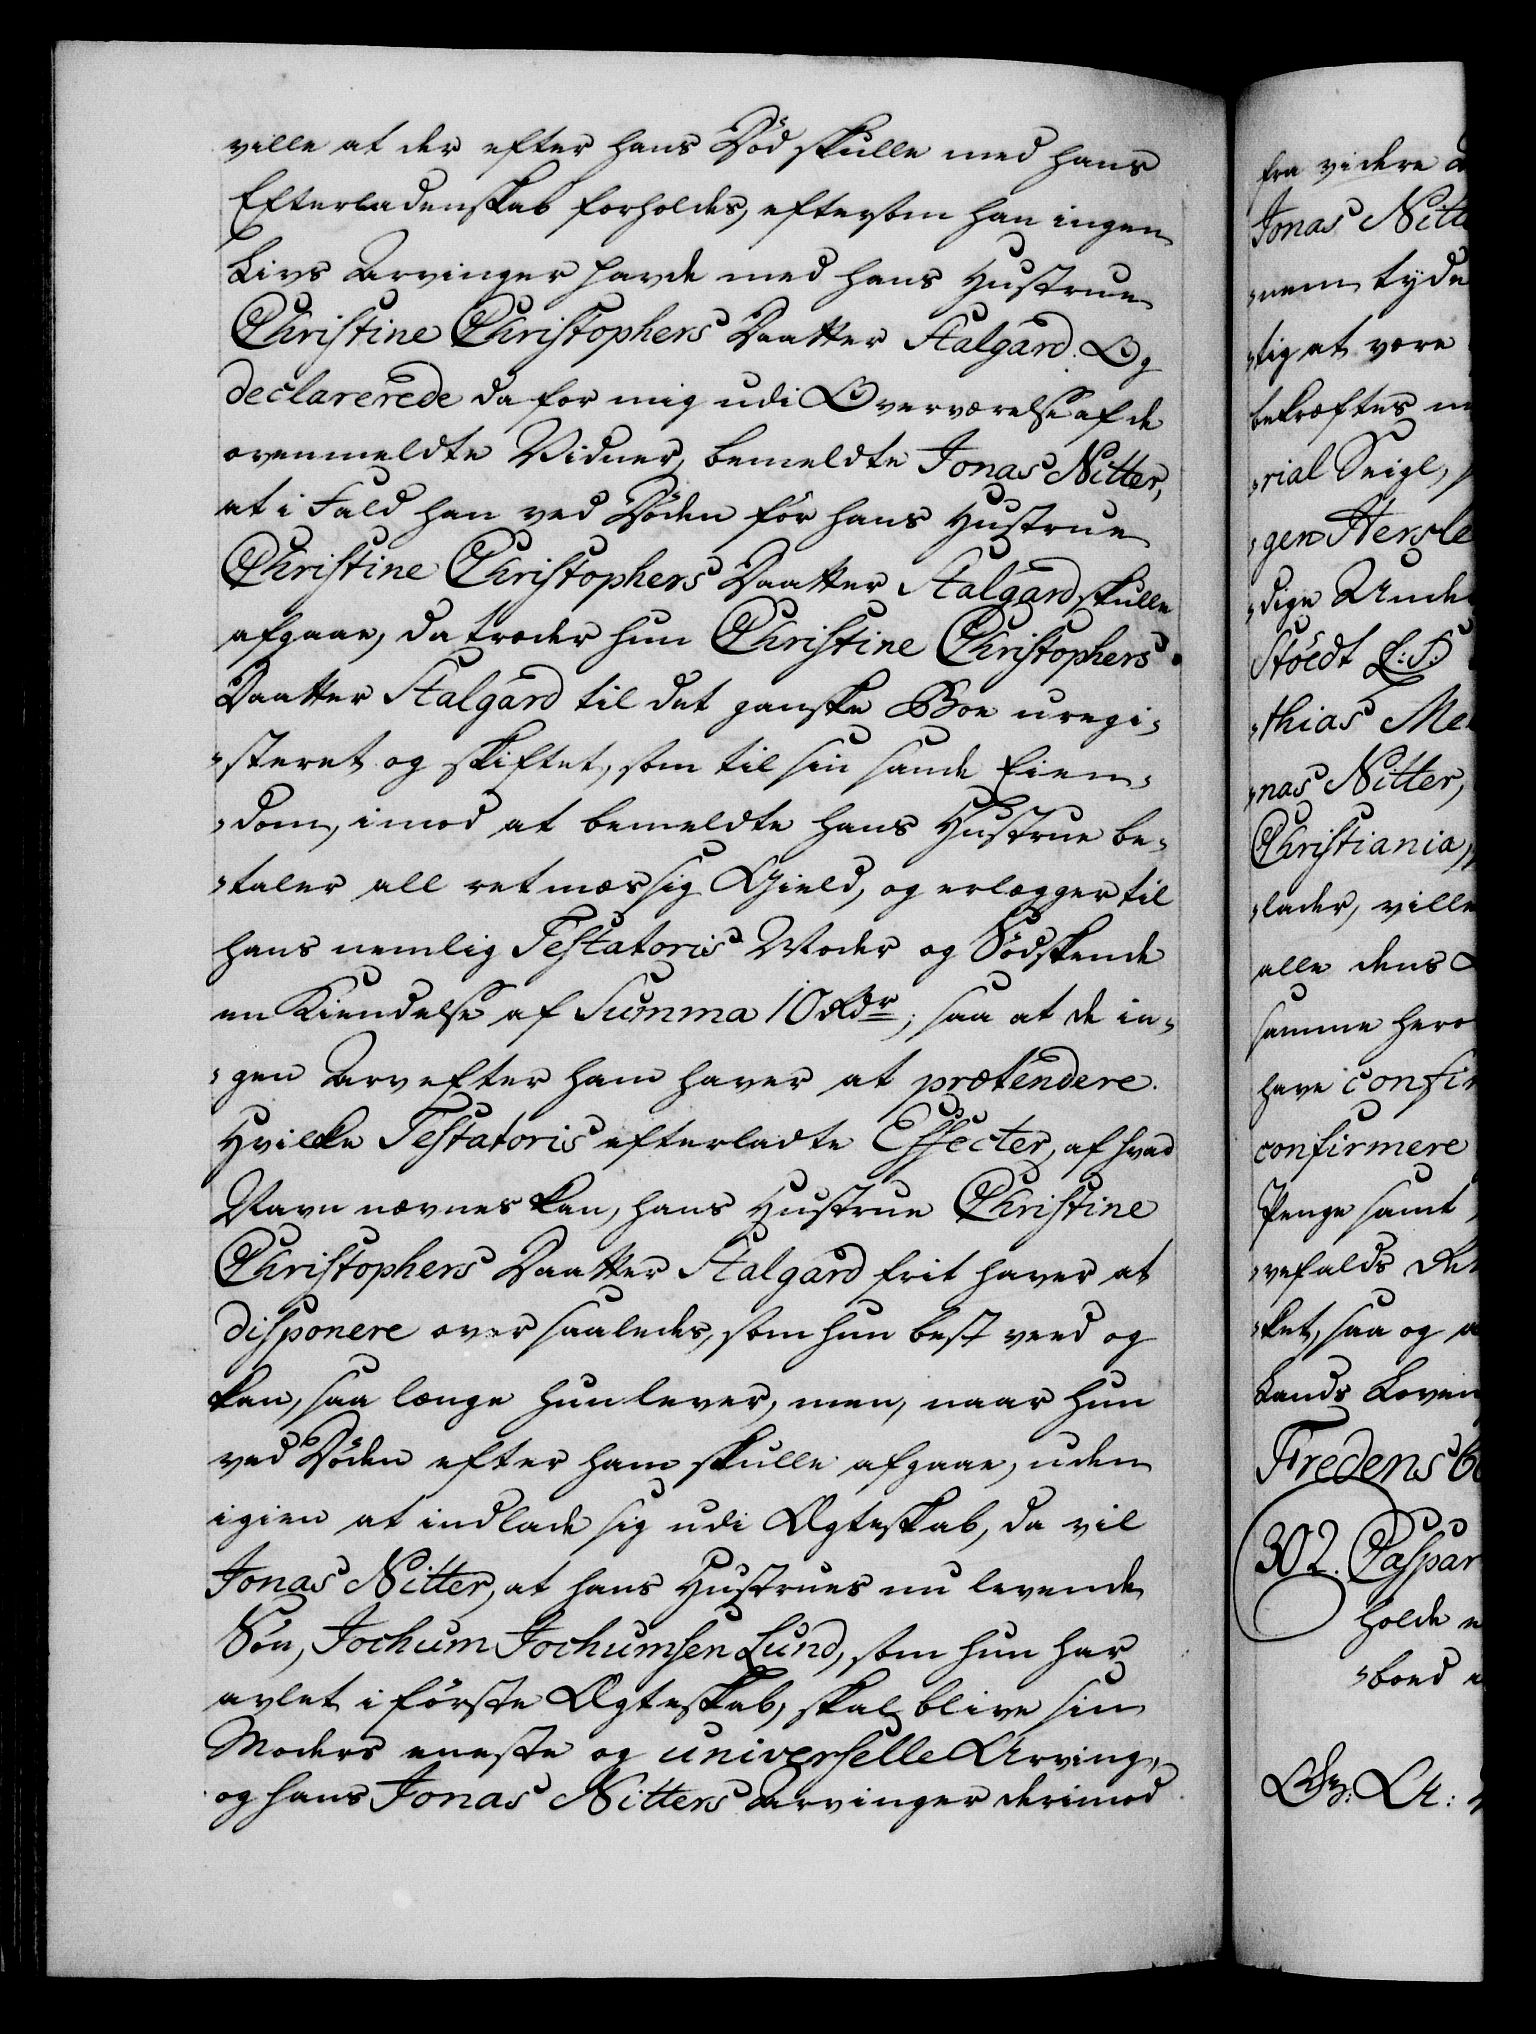 ville at der efter hans Död skulle med hans
Efterladenskab forholdes, eftersom han ingen
Livs Arvinger havde med hans Hustrue
Christine Christophers Daatter Stalgard. Og
declarerede da for mig udi Overværelse af de
ovenmeldte Vidner, bemeldte Jonas Nitter,
at i Fald han ved Döden för hans Hustrue
Christine Christophers Daatter Stalgard skulle
afgaae, da træder hun Christine Christophers
Daatter Stalgard til det ganske Boe uregi-
-steret og skiftet, som til sin sande Eien-
-dom, imod at bemeldte hans Hustrue be-
-taler all retmæssig Gield, og erlægger til
hans nemlig Testatoris Moder og Södskende
en Kiendelse af Summa 10 Rdr; saa at de in-
-gen Arv efter ham haver at prætendere.
Hvilke Testatoris efterladte Effecter, af hvad
Navn nævnes kan, hans Hustrue Christine
Christophers Daatter Stalgard frit haver at
disponere over saaledes, som hun best veed og
kan, saa længe hun lever, men, naar hun
ved Döden efter ham skulle afgaae, uden
igien at indlade sig udi Ægteskab, da vil
Jonas Nitter, at hans Hustrues nu levende
Sön, Jochum Jochumsen Lund, som hun har
avlet i förste Ægteskab, skal blive sin
Moders eneste og universelle Arving,
og hans Jonas Nitters Arvinger derimod
fra videre
Jonas Nitt
-nem tyde
-tig at være
bekræftes
-rial Seigl,
-gen Hersle
-dige Unde
Stöedt L:S.
-thias Me
-nas Nitter,
Christiania,
-lader, ville
alle dens
samme her
have confir
confirmere
Penge samt
-vefalds Ret
-ket, saa og
Lands Loven
Fredensb
302. Caspar
holde
-boed